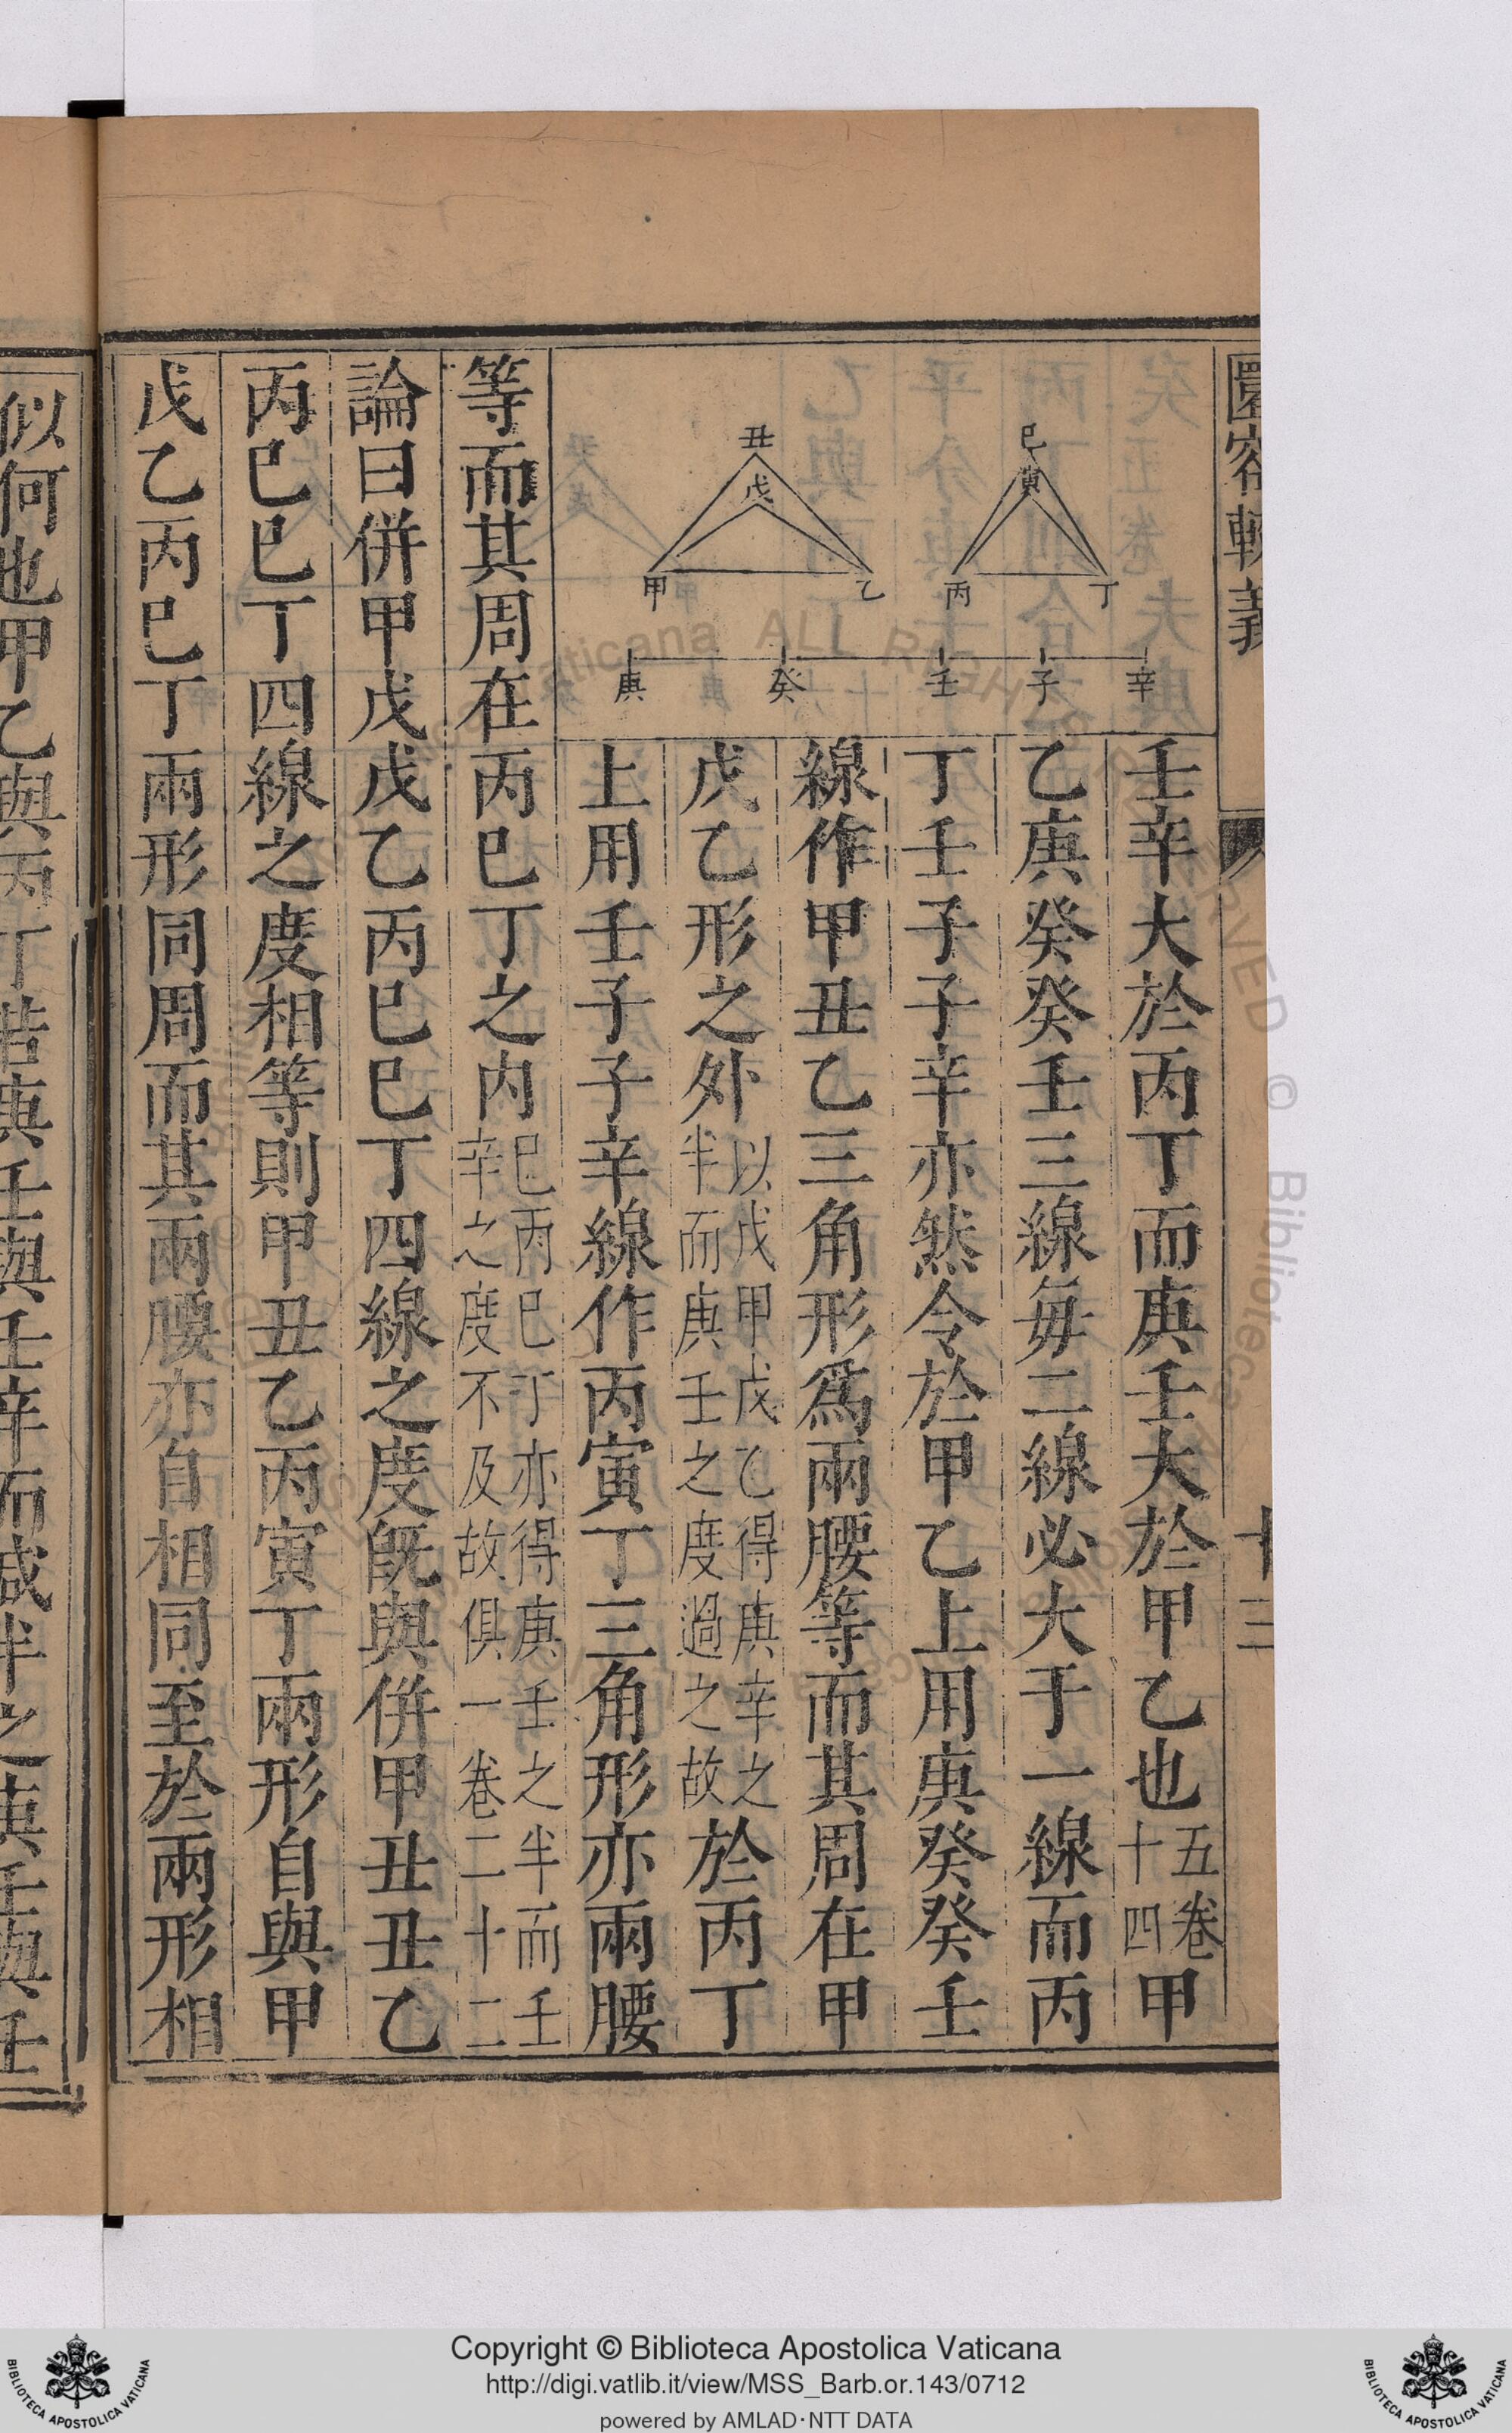 圜容較義
十三
丑
戊
甲
乙
巳
寅
丙
丁
庚 癸 壬 子 辛
壬辛大於丙丁而庚壬大於甲乙也五卷十四甲
乙庚癸癸壬三線每二線必大于一線而丙
丁壬子子辛亦然令於甲乙上用庚癸癸壬
線作甲丑乙三角形為兩腰等而其周在甲
戊乙形之外以戊甲戊乙得庚辛之半而庚壬之度過之故於丙丁
上用壬子子辛線作丙寅丁三角形亦兩腰
等而其周在丙巳丁之內巳丙巳丁亦得庚壬之半而壬辛之度不及故俱一卷二十二
論曰併甲戊戊乙丙巳巳丁四線之度既與併甲丑丑乙
丙巳巳丁四線之度相等則甲丑乙丙寅丁兩形自與甲
戊乙丙巳丁兩形同周而其兩腰亦自相同至於兩形相
似何也甲乙與丙丁若庚壬與壬辛而減半之庚壬與壬
Copyright © Biblioteca Apostolica Vaticana
http://digi.vatlib.it/view/MSS_Barb.or.143/0712
powered by AMLAD·NTT DATA
BIBLIOTECA APOSTOLICA VATICANA
BIBLIOTECA APOSTOLICA VATICANA